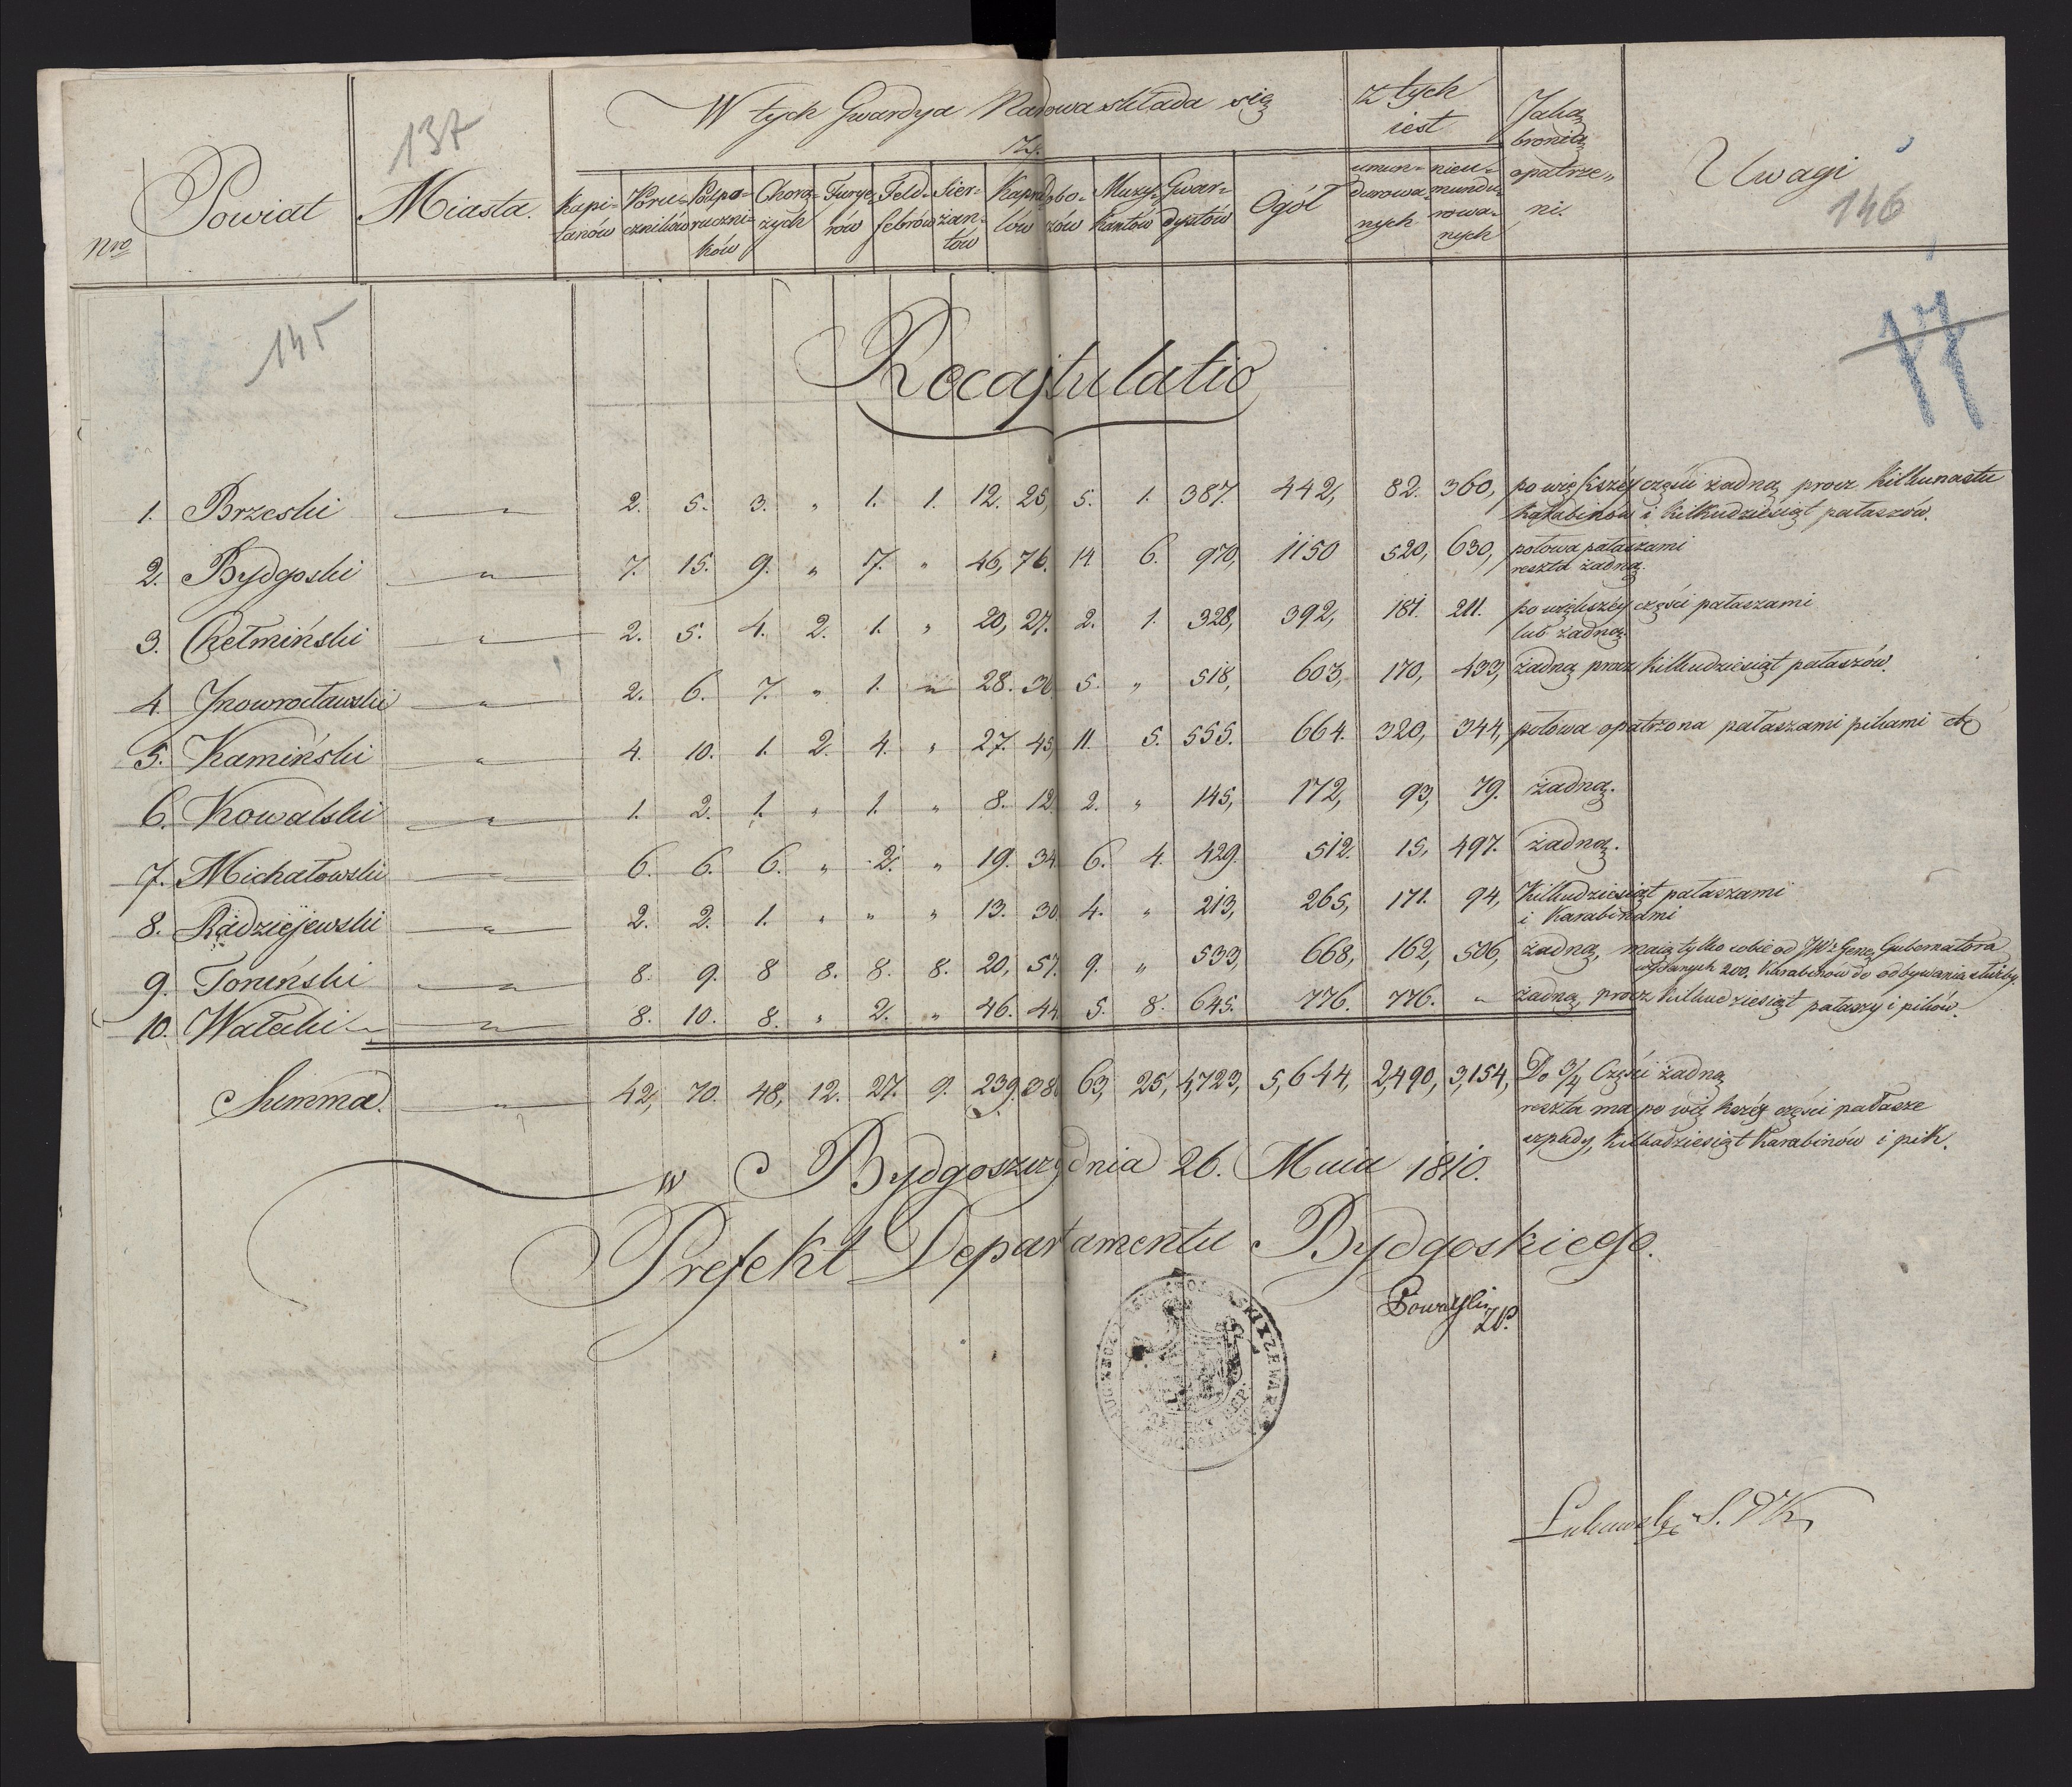 137
W tych Gwardya Nadowa składa się
z
z tych
iest
Jaką
bronią
opatrze„
ni.
Uwagi
146
Nro
Powiat
Miasta.
Kapi=
tanów
Poru=
czników
Podpo=
ruczni=
ków
Chorą=
żych
Furye=
rów
Feld=
febrów
Sier=
żan=
tów
Kapra
lów
Dobo=
zów
Muzy=
kantów
Gwar=
dystów
Ogół
umun=
durowa=
nych
nieu=
mundu=
rowa=
nych
145
17
Recapitulatio
1. Brzeski — „ — 2. 5. 3. „ 1. 1. 12. 25, 5. 1. 387. 442, 82. 360, po większéy części żadną procz kilkunastu
karabinów i kilkudziesiąt pałaszów.
2. Bydgoski — „ — 7. 15. 9. „ 7. „ 46, 76. 14 6. 970, 1150 520, 630, połowa pałaszami
reszta żadną.
3. Chełmiński — „ — 2. 5. 4. 2. 1. „ 20, 27. 2. 1. 328, 392, 181. 211. po większéy części pałaszami
lub żadną.
4. Jnowrocławski — „ — 2. 6. 7. „ 1. „ 28. 36 5. „ 518, 603, 170, 433, żadną procz kilkudziesiąt pałaszów.
5. Kamiński — „ — 4. 10. 1. 2. 4. „ 27. 45, 11. 5. 555. 664. 320, 344, połowa opatrzona pałaszami pikami etc
6. Kowalski — „ — 1. 2. 1. „ 1. „ 8. 12. 2. „ 145, 172, 93, 79. żadną.
7. Michałowski — „ — 6. 6. 6. „ 2. „ 19. 34 6. 4. 429. 512. 15, 497. żadną.
8. Radziejewski — „ — 2. 2. 1. „ „ „ 13. 30 4. „ 213, 265, 171. 94, Kilkudziesiąt pałaszami
i karabinami
9. Toruński — „ — 8. 9. 8 8. 8. 8. 20, 57. 9. „ 533, 668, 162, 506, żadną, maią tylko sobie od JWo Gene. Gubernatora
wydanych 200. Karabinów do odbywania służby.
10. Wałecki — „ — 8. 10. 8. „ 2. „ 46. 44 5. 8. 645. 776. 776. „ żadną, procz kilkudziesiąt pałaszy i pików.
Summa. — „ — 42, 70. 48, 12. 27. 9. 239. 386 63, 25, 4,723, 5,644, 2,490, 3,154, Do 3/4 Części żadną
reszta ma po większéy części pałasze
szpady, kilkadziesiąt Karabinów i pik.
w Bydgoszczy dnia 26. Maia 1810.
Prefekt Departamentu Bydgoskiego.